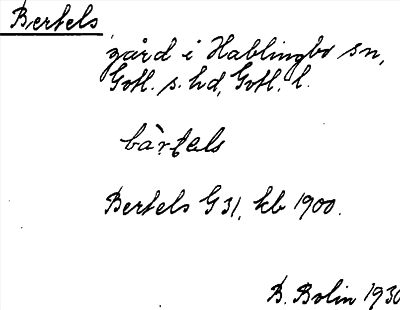 Bertels
gård i Hablingbo sn,
Gotl. s. hd, Gotl. l.
bàrtels
Bertels G 31, kb 1900.
B. Bolin 1930